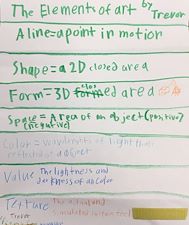 The Elements of art by Trevor
A line = a point in motion
Shape = a 2D closed area
Form = 3D formed area
Space = Area of an object (positive)
(negative)
Color = wavelengths of light that
reflect an object
Value The lightness and
darkness of a color
Texture The actual and
simulated
Trevor